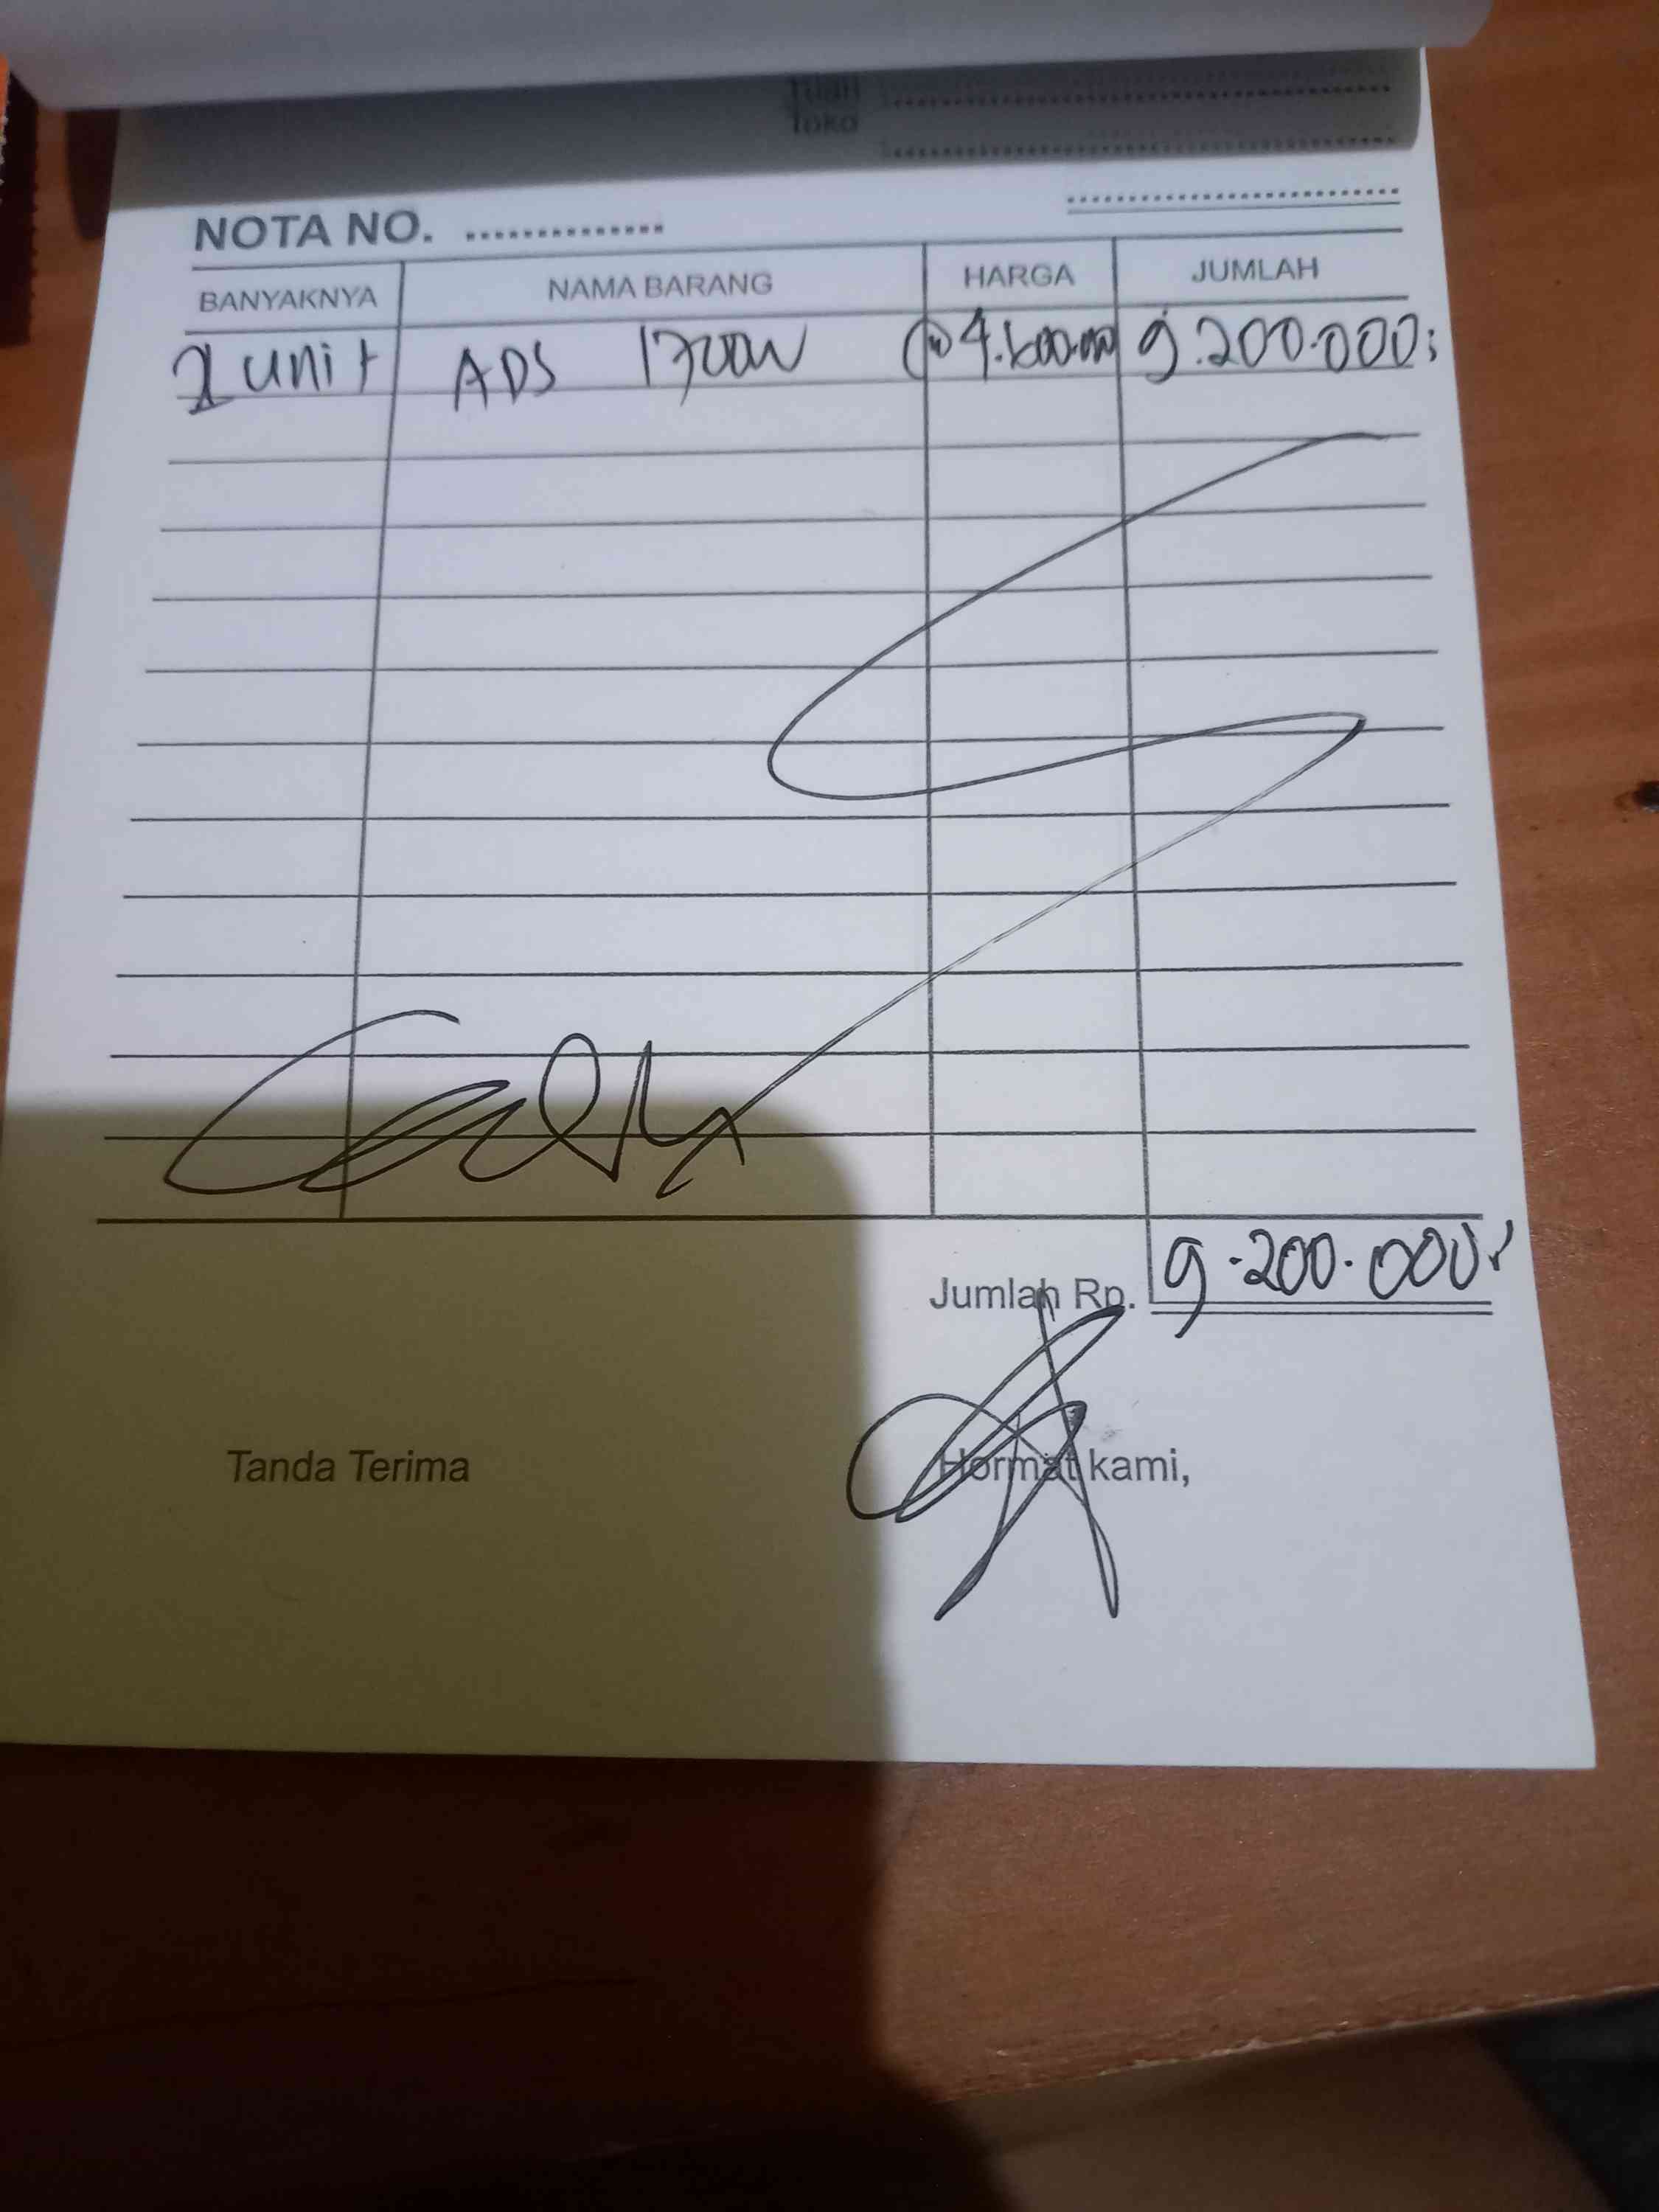 Tuan
Toko
NOTA NO.
BANYAKNYA NAMA BARANG HARGA JUMLAH
2 unit ADS 1700W @ 4.600.000 9.200.000
Cash
Jumlah Rp. 9.200.000
Tanda Terima Hormat kami,